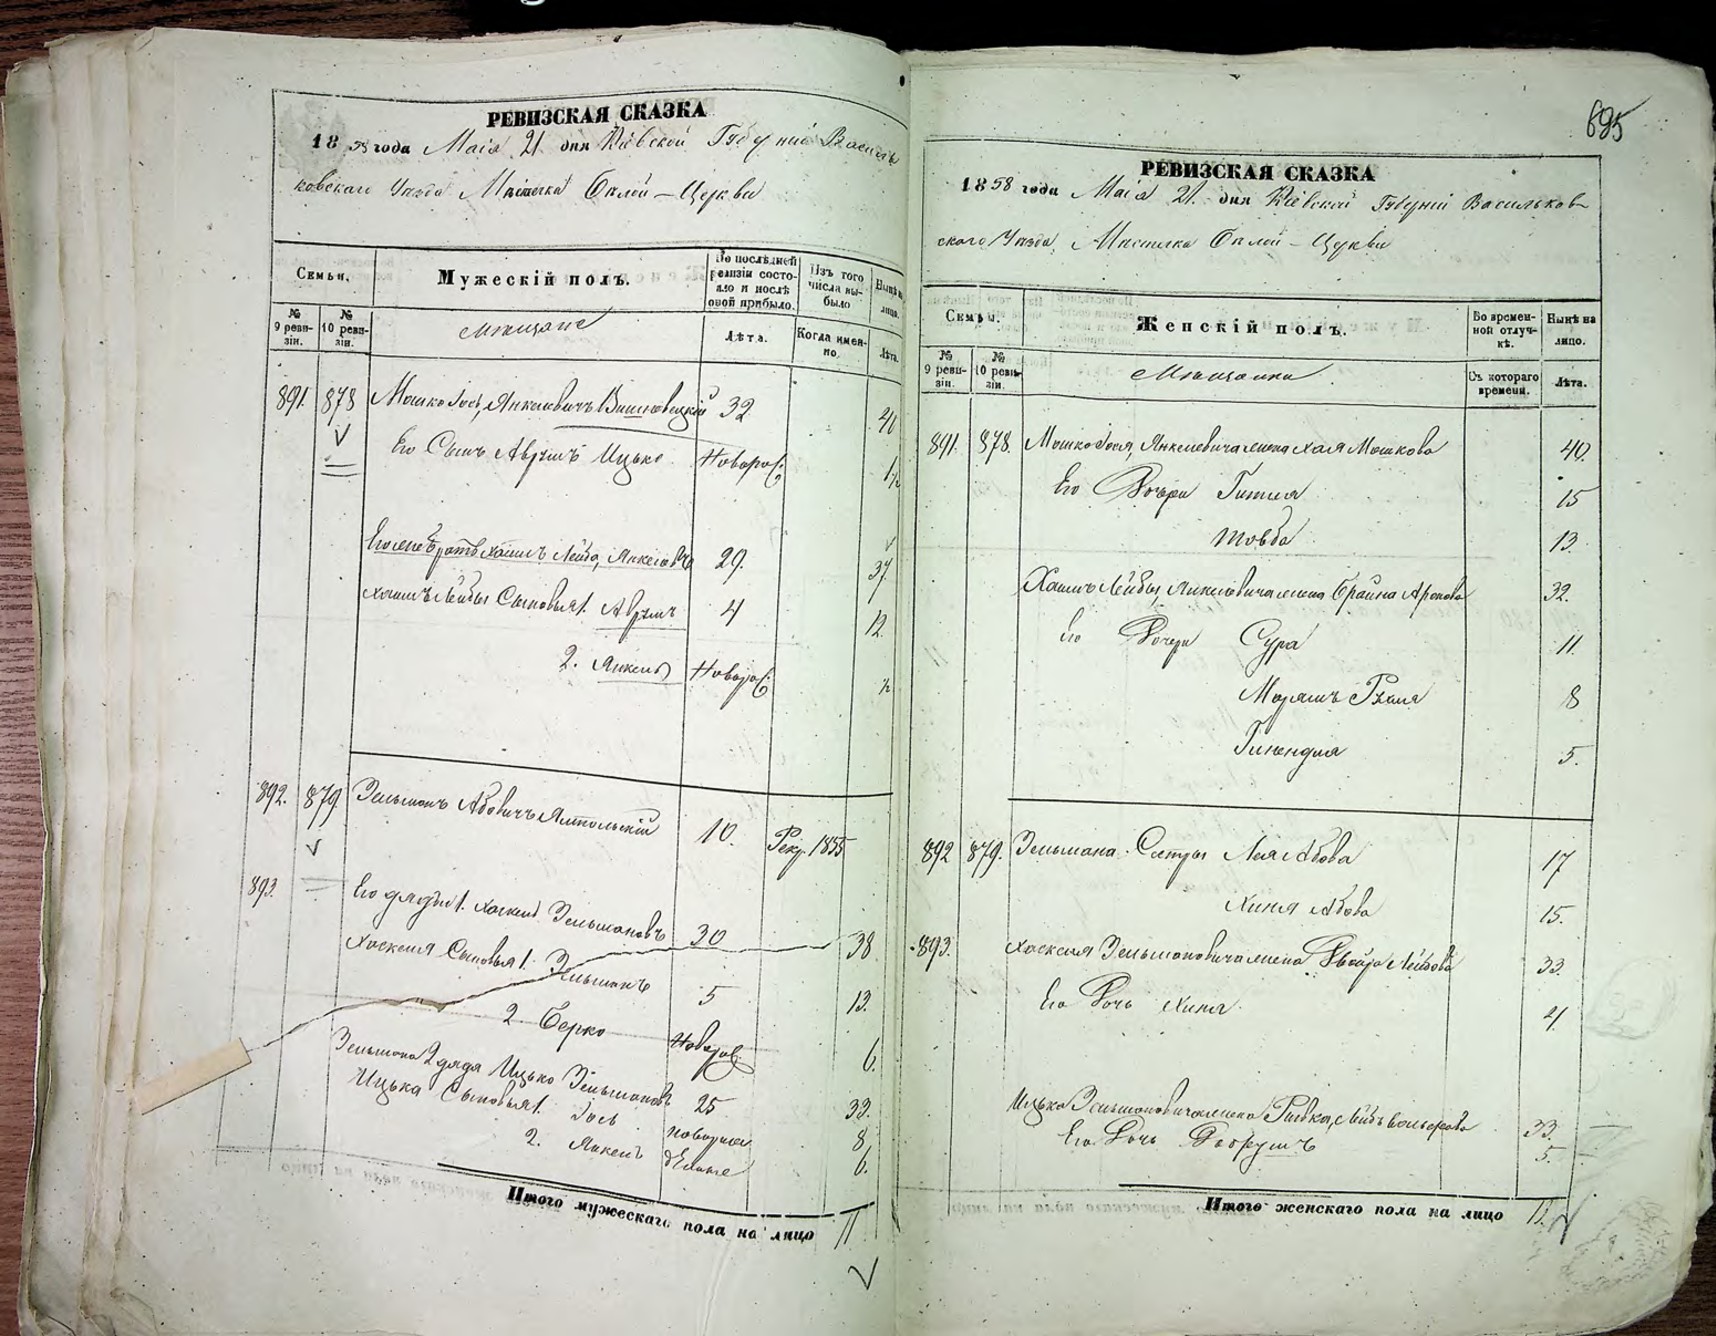 695
РЕВИЗСКАЯ СКАЗКА
1858 года Маія 21 дня Кіевской Губерніи Василь
ковскаго Уезда Местечка Белой-Церкви
Семьи.
Мужескій полъ.
Во последней ревизіи состояло и после оной прибыло.
Изъ того числа выбыло
Ныне на лицо.
№ 9 ревизіи.
№ 10 ревизіи.
мещане
Лѣта.
Когда именно.
Лѣта.
891. 878 Мошко Іось Янкелевичъ Вишновецкій 32 40
Его Сынъ Аврумъ Ицько Новорож: 1/2
Его же братъ Хаимъ Лейба, Янкелев 29. 37.
Хаимъ Лейбы Сыновья 1. Аврумъ 4 12.
2. Янкель Новорож: 1/2
892. 879 Зельманъ Абовичъ Ямпольскій 10. Рекр. 1855
893. Его дяди 1. Хаскель Зельмановъ 30 38
Хаскеля Сыновья 1. Зельманъ 5 13.
2 Берко Новорож. 6.
Зельмана 2 дядя Ицько Зельмановъ 25 33.
Ицька Сыновья 1. Іось новорож 8
2. Янкель денные 6.
Итого мужескаго пола на лицо 11
РЕВИЗСКАЯ СКАЗКА
1858 года Маія 21. дня Кіевской Губерніи Васильков
скаго Уезда, Местечка Белой-Церкви
Семьи.
Женскій полъ.
Во временной отлучкѣ.
Нынѣ на лицо.
№ 9 ревизіи.
№ 10 ревизіи.
мещанки.
Съ котораго времени.
Лѣта.
891. 878. Мошко Іося, Янкелевича жена Хая Мошкова 40.
Его Дочери Гитля 15
Товба 13.
Хаимъ Лейбы, Янкелевича жена Брайна Аронова 32.
Его Дочери Сура 11.
Маріямъ Рухля 8
Гинендля 5.
892 879. Зельмана Сестры Лея Абова 17
Хиня Абова 15.
893. Хаскеля Зельмановича жена Двойра Лейбова 33.
Его Дочь Хиня 4.
Ицька Зельмановича жена Ривка, Лейбъ Вольфова 33.
Его Дочь Двоřумъ 5.
Итого женскаго пола на лицо